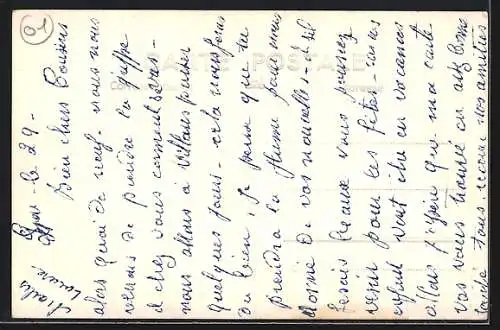 CARTE POSTALE
le 29 -
Bien chers Cousins
alors quoi de neuf - nous nous
venons de prendre la grippe
et chez vous comment vous -
nous allons à Villars passer
quelques jours - cela nous fera
du bien, je pense que tu
prendra la plume pour nous
donner de vos nouvelles - s'il
ferais beau vous pouvez
venir pour les fêtes -
enfants vont être en vacances
allons j'espère que ma carte
vas vous trouver en assez bonne
santé tous nos amitiés
Louise